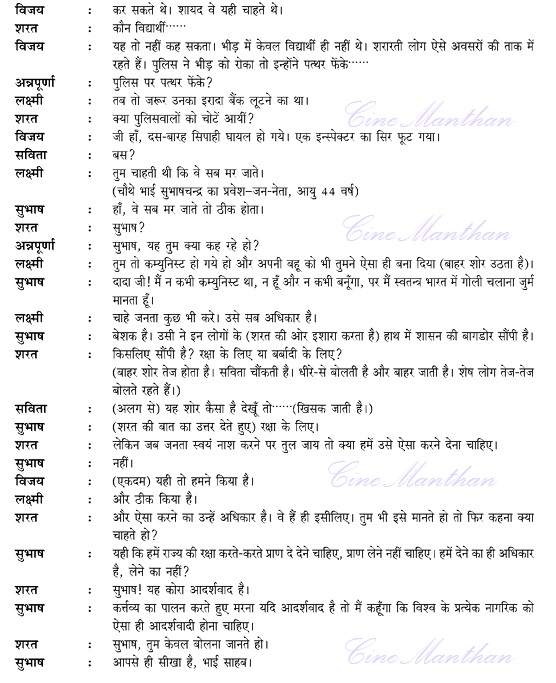 विजय : कर सकते थे। शायद वे यही चाहते थे।
शरत : कौन विद्यार्थी······
विजय : यह तो नहीं कह सकता। भीड़ में केवल विद्यार्थी ही नहीं थे। शरारती लोग ऐसे अवसरों की ताक में
रहते हैं। पुलिस ने भीड़ को रोका तो इन्होंने पत्थर फेंके······
अन्नपूर्णा : पुलिस पर पत्थर फेंके?
Cine Manthan
लक्ष्मी : तब तो जरूर उनका इरादा बैंक लूटने का था।
शरत : क्या पुलिसवालों को चोटें आयीं?
विजय : जी हाँ, दस-बारह सिपाही घायल हो गये। एक इन्स्पेक्टर का सिर फूट गया।
सविता : बस?
लक्ष्मी : तुम चाहती थी कि वे सब मर जाते।
(चौथे भाई सुभाषचन्द्र का प्रवेश–जन-नेता, आयु 44 वर्ष)
सुभाष : हाँ, वे सब मर जाते तो ठीक होता।
शरत : सुभाष?
Cine Manthan
अन्नपूर्णा : सुभाष, यह तुम क्या कह रहे हो?
लक्ष्मी : तुम तो कम्युनिस्ट हो गये हो और अपनी बहू को भी तुमने ऐसा ही बना दिया (बाहर शोर उठता है)।
सुभाष : दादा जी! मैं न कभी कम्युनिस्ट था, न हूँ और न कभी बनूँगा, पर मैं स्वतन्त्र भारत में गोली चलाना जुर्म
मानता हूँ।
लक्ष्मी : चाहे जनता कुछ भी करे। उसे सब अधिकार है।
सुभाष : बेशक है। उसी ने इन लोगों के (शरत की ओर इशारा करता है) हाथ में शासन की बागडोर सौंपी है।
शरत : किसलिए सौंपी है? रक्षा के लिए या बर्बादी के लिए?
(बाहर शोर तेज होता है। सविता चौंकती है। धीरे-से बोलती है और बाहर जाती है। शेष लोग तेज-तेज
बोलते रहते हैं।)
सविता : (अलग से) यह शोर कैसा है देखूँ तो······(खिसक जाती है।)
सुभाष : (शरत की बात का उत्तर देते हुए) रक्षा के लिए।
शरत : लेकिन जब जनता स्वयं नाश करने पर तुल जाय तो क्या हमें उसे ऐसा करने देना चाहिए।
सुभाष : नहीं।
Cine Manthan
विजय : (एकदम) यही तो हमने किया है।
लक्ष्मी : और ठीक किया है।
शरत : और ऐसा करने का उन्हें अधिकार है। वे हैं ही इसीलिए। तुम भी इसे मानते हो तो फिर कहना क्या
चाहते हो?
सुभाष : यही कि हमें राज्य की रक्षा करते-करते प्राण दे देने चाहिए, प्राण लेने नहीं चाहिए। हमें देने का ही अधिकार
है, लेने का नहीं?
शरत : सुभाष! यह कोरा आदर्शवाद है।
सुभाष : कर्त्तव्य का पालन करते हुए मरना यदि आदर्शवाद है तो मैं कहूँगा कि विश्व के प्रत्येक नागरिक को
ऐसा ही आदर्शवादी होना चाहिए।
शरत : सुभाष, तुम केवल बोलना जानते हो।
Cine Manthan
सुभाष : आपसे ही सीखा है, भाई साहब।